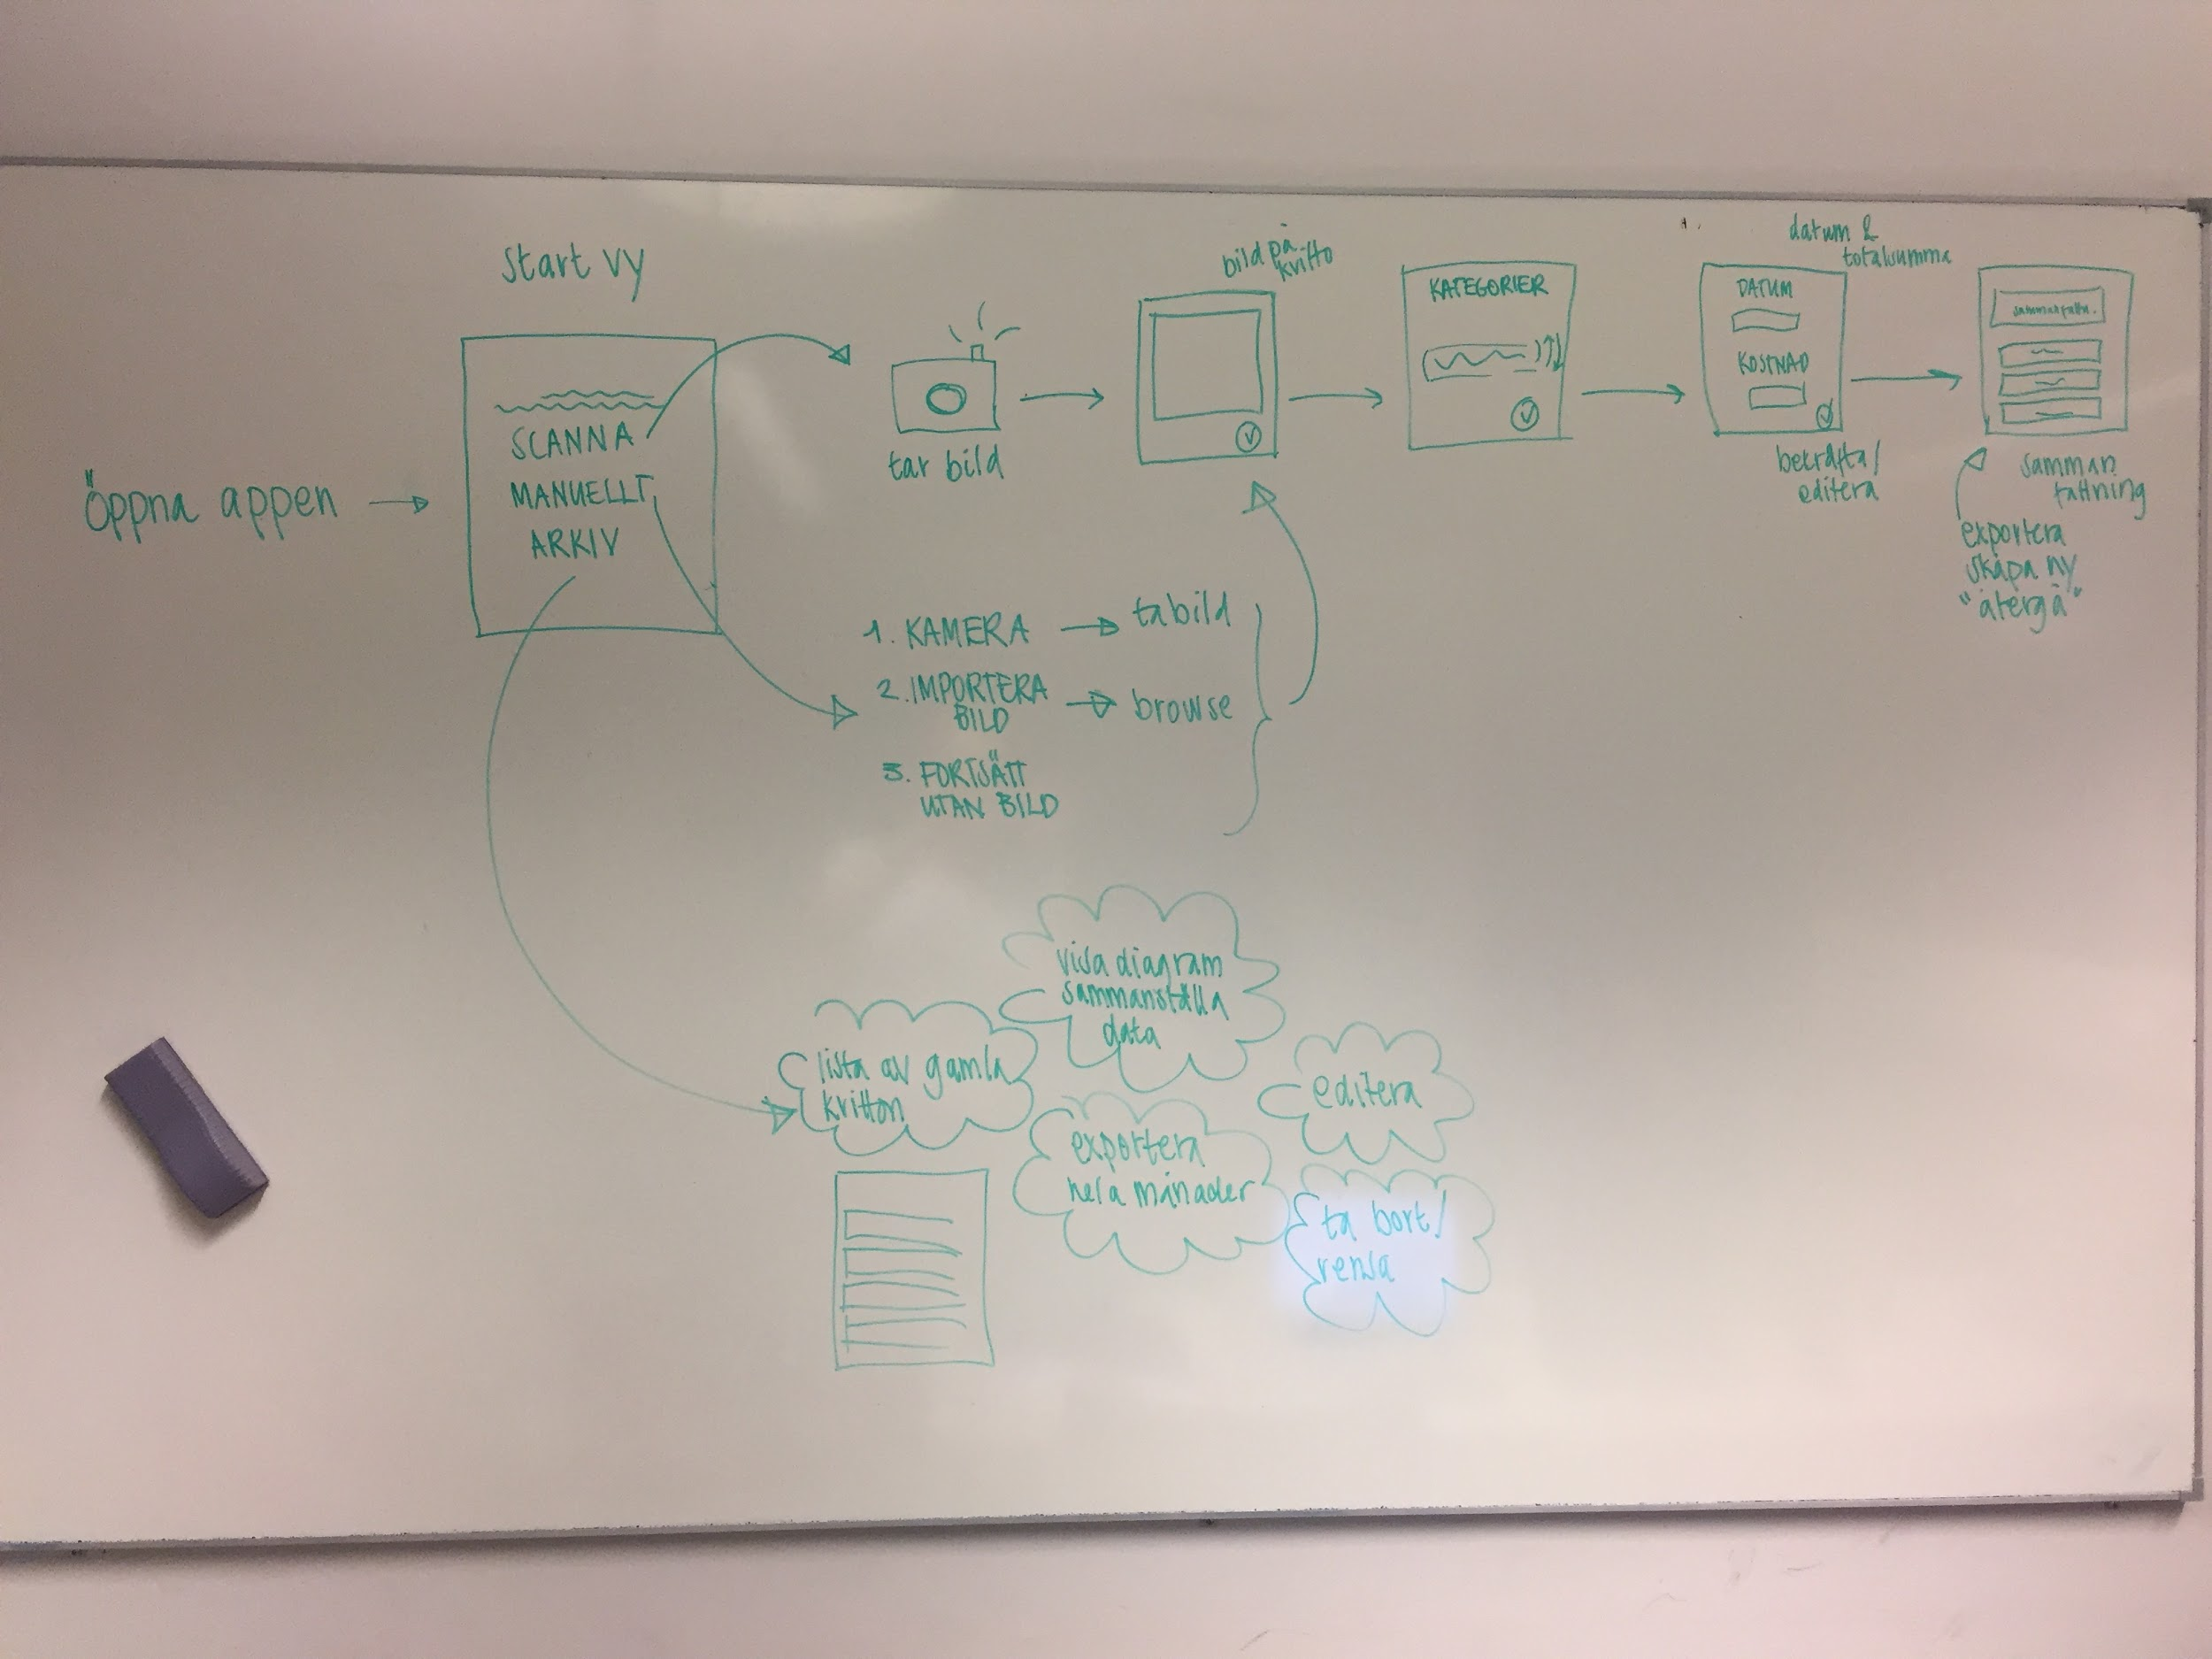 Start vy
Öppna appen
SCANNA
MANUELLT
ARKIV
tar bild
bild på
kvitto
KATEGORIER
datum &
totalsumma
DATUM
KOSTNAD
bekräfta/
editera
samman
fattning
exportera
skapa ny
"återgå"
1. KAMERA
ta bild
2. IMPORTERA
BILD
browse
3. FORTSÄTT
UTAN BILD
visa diagram
sammanställa
data
lista av gamla
kvitton
editera
exportera
hela månader
ta bort/
rensa